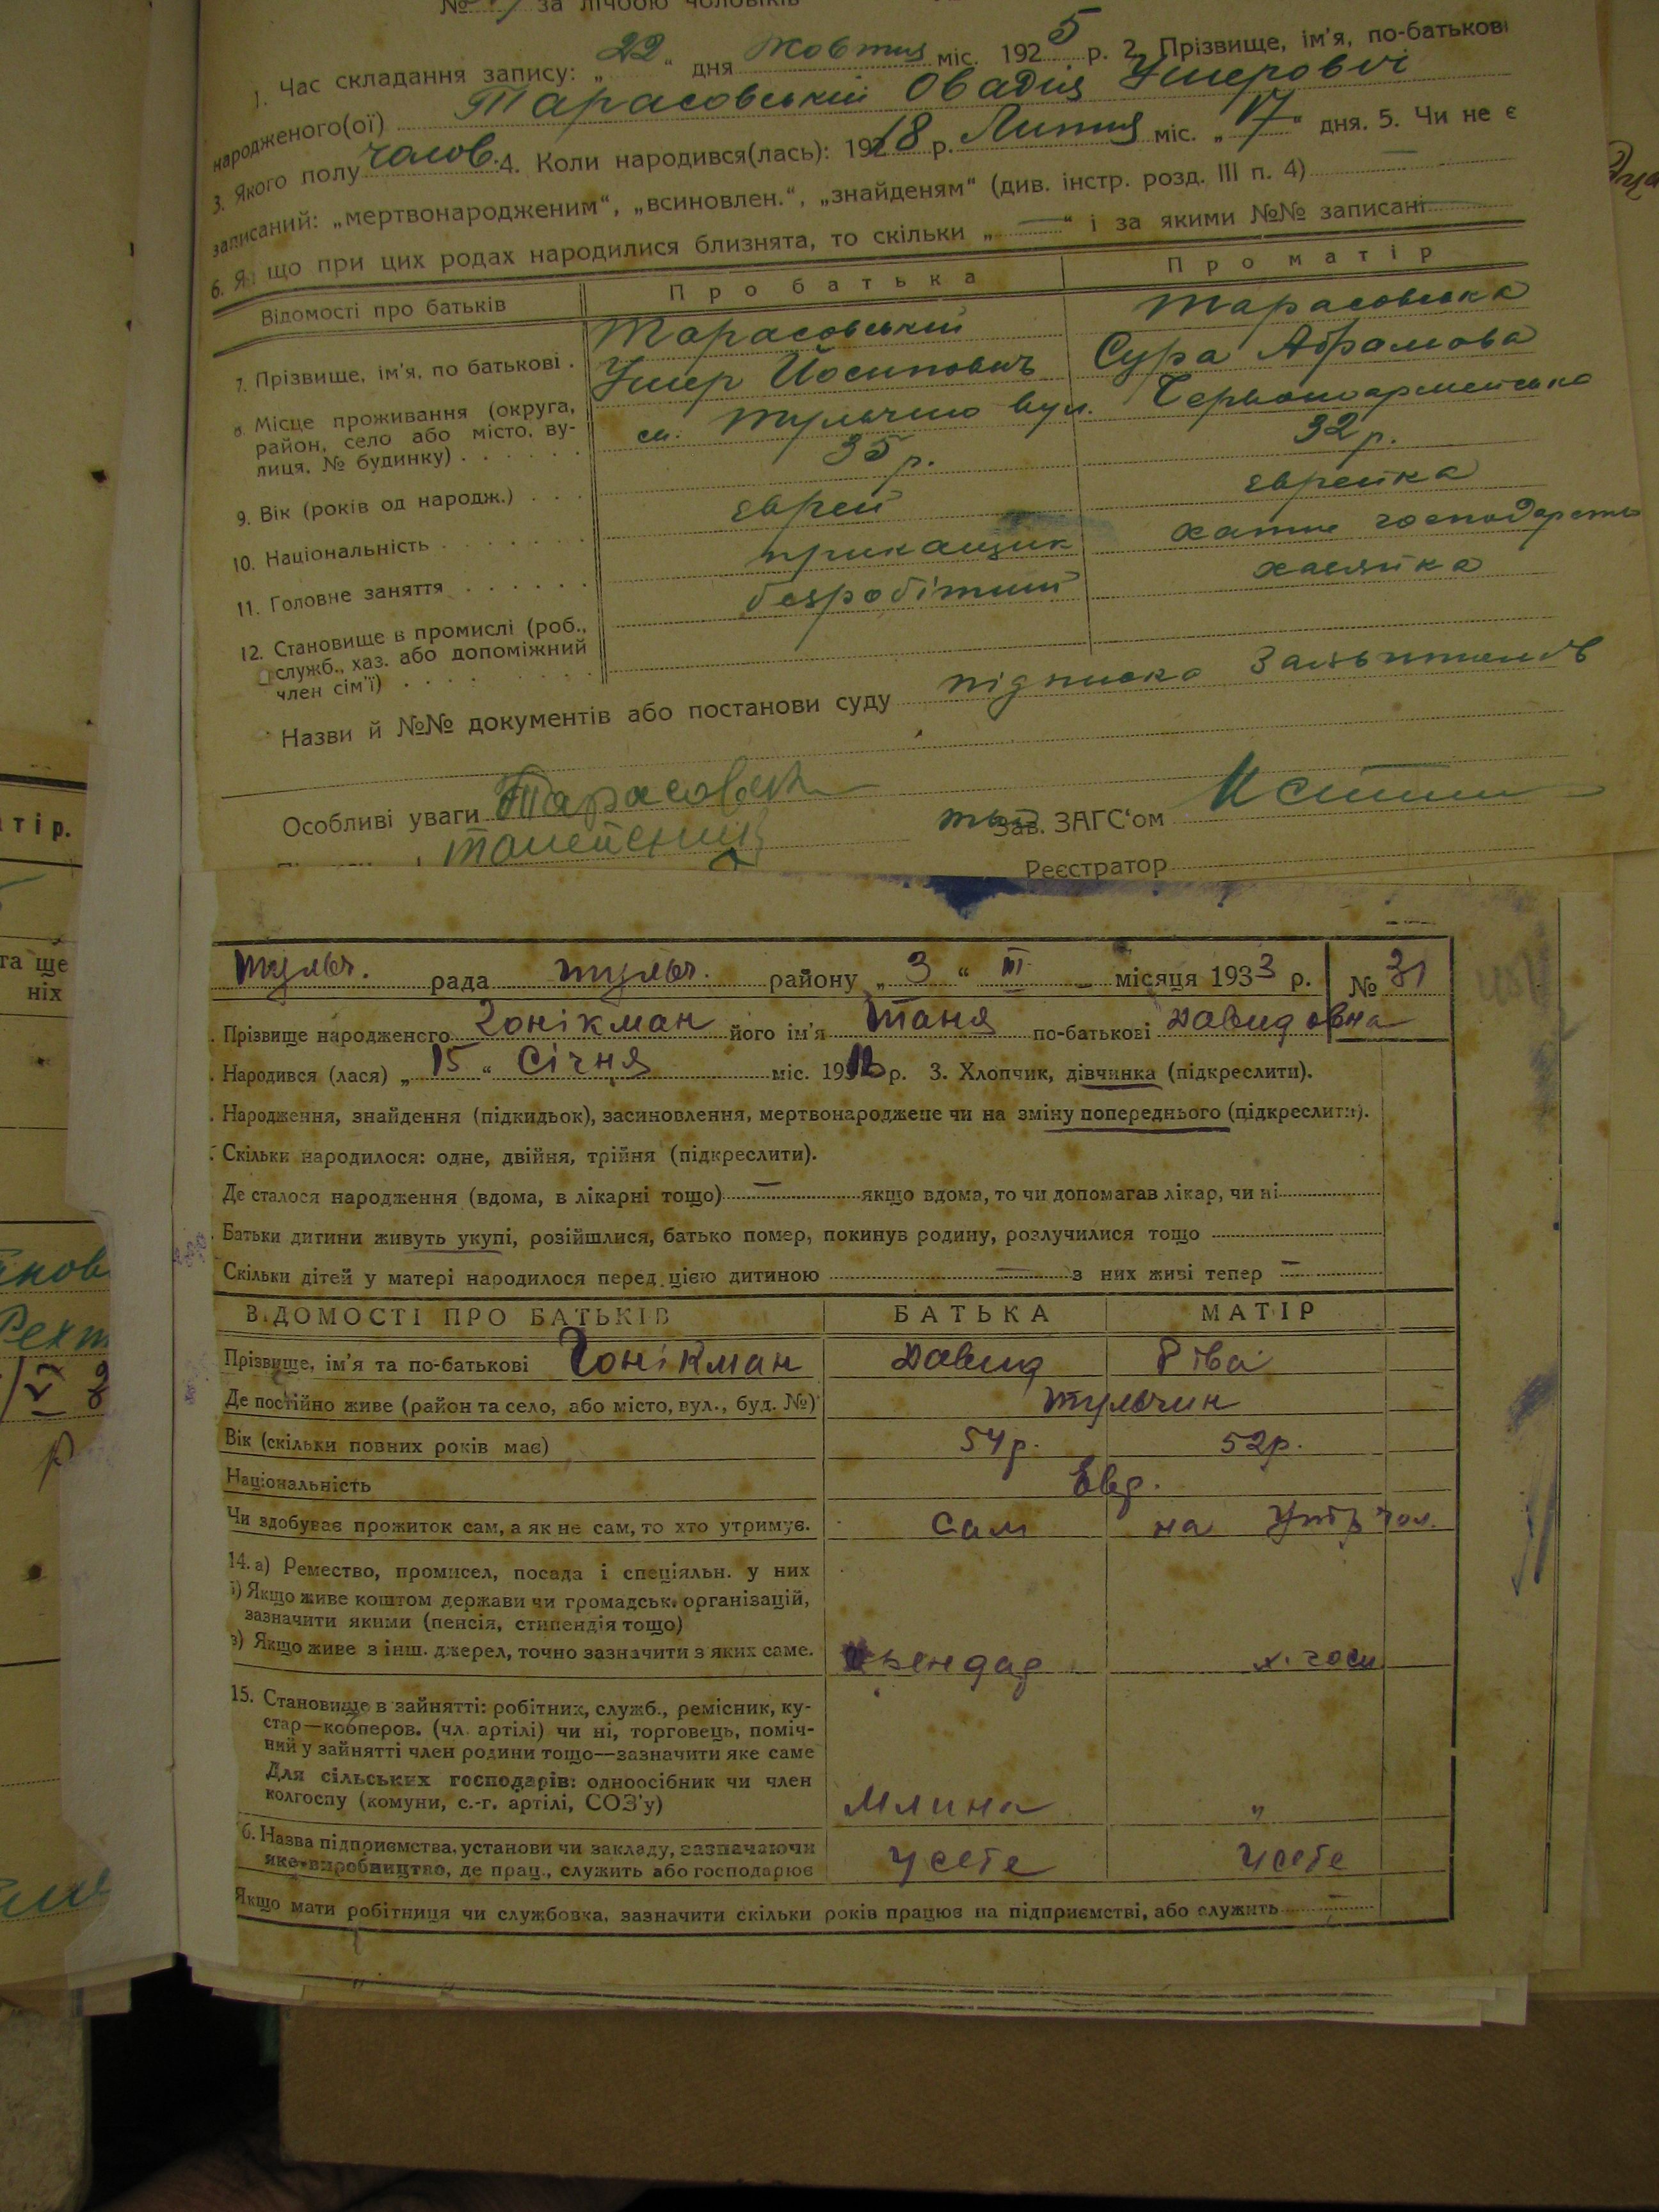 № за лічбою чоловіків
1. Час складання запису: „22“ дня Жовтня міс. 1925 р. 2. Прізвище, ім'я, по-батькові
народженого(ої) Тарасовський Овадія Умерович
3. Якого полу чолов. 4. Коли народився(лась): 1918 р. Липня міс. „17“ дня. 5. Чи не є
записаний: „мертвонародженим“, „всиновлен.“, „знайденям“ (див. інстр. розд. III п. 4) —
6. Якщо при цих родах народилися близнята, то скільки „—“ і за якими №№ записані —
Відомості про батьків Про батька Про матір
7. Прізвище, ім'я, по батькові . Тарасовський Тарасовська
Умер Йосипович Сура Абрамова
8. Місце проживання (округа, район, село або місто, вулиця, № будинку) м. Тульчин вул. Червоноармейська
9. Вік (років од народж.) 35 р. 32 р.
10. Національність еврей еврейка
11. Головне заняття прикащик хатне господарство
12. Становище в промислі (роб., служб., хаз. або допоміжний член сім'ї) безробітний хазяйка
Назви й №№ документів або постанови суду підписка
Особливі уваги Тарасовск
Зав. ЗАГС'ом
Реєстратор
тір.
та ще
ніх
Тульч. рада Тульч. району „3“ III місяця 1933 р. № 31
Прізвище народженого Гонікман його ім'я Таня по-батькові Давидовна
Народився (лася) „15“ Січня міс. 1913 р. 3. Хлопчик, дівчинка (підкреслити).
Народження, знайдення (підкидьок), засиновлення, мертвонароджене чи на зміну попереднього (підкреслити).
Скільки народилося: одне, двійня, трійня (підкреслити).
Де сталося народження (вдома, в лікарні тощо) — якщо вдома, то чи допомагав лікар, чи ні
Батьки дитини живуть укупі, розійшлися, батько помер, покинув родину, розлучилися тощо
Скільки дітей у матері народилося перед цією дитиною — з них живі тепер —
ВІДОМОСТІ ПРО БАТЬКІВ БАТЬКА МАТІР
Прізвище, ім'я та по-батькові Гонікман Давид Ріва
Де постійно живе (район та село, або місто, вул., буд. №) Тульчин
Вік (скільки повних років має) 54 р. 52 р.
Національність Евр.
Чи здобуває прожиток сам, а як не сам, то хто утримує. Сам на Утр чол.
14. а) Ремество, промисел, посада і спеціяльн. у них
б) Якщо живе коштом держави чи громадськ. організацій,
зазначити якими (пенсія, стипендія тощо)
в) Якщо живе з інш. джерел, точно зазначити з яких саме. х. госп
15. Становище в зайнятті: робітник, служб., ремісник, ку-
стар—кооперов. (чл. артілі) чи ні, торговець, поміч-
ний у зайнятті член родини тощо—зазначити яке саме
Для сільських господарів: одноосібник чи член
колгоспу (комуни, с.-г. артілі, СОЗ'у) Млина "
6. Назва підприємства, установи чи закладу, зазначаючи
яке виробництво, де прац., служить або господарює У себе У себе
Якщо мати робітниця чи службовка, зазначити скільки років працює на підприємстві, або служить —